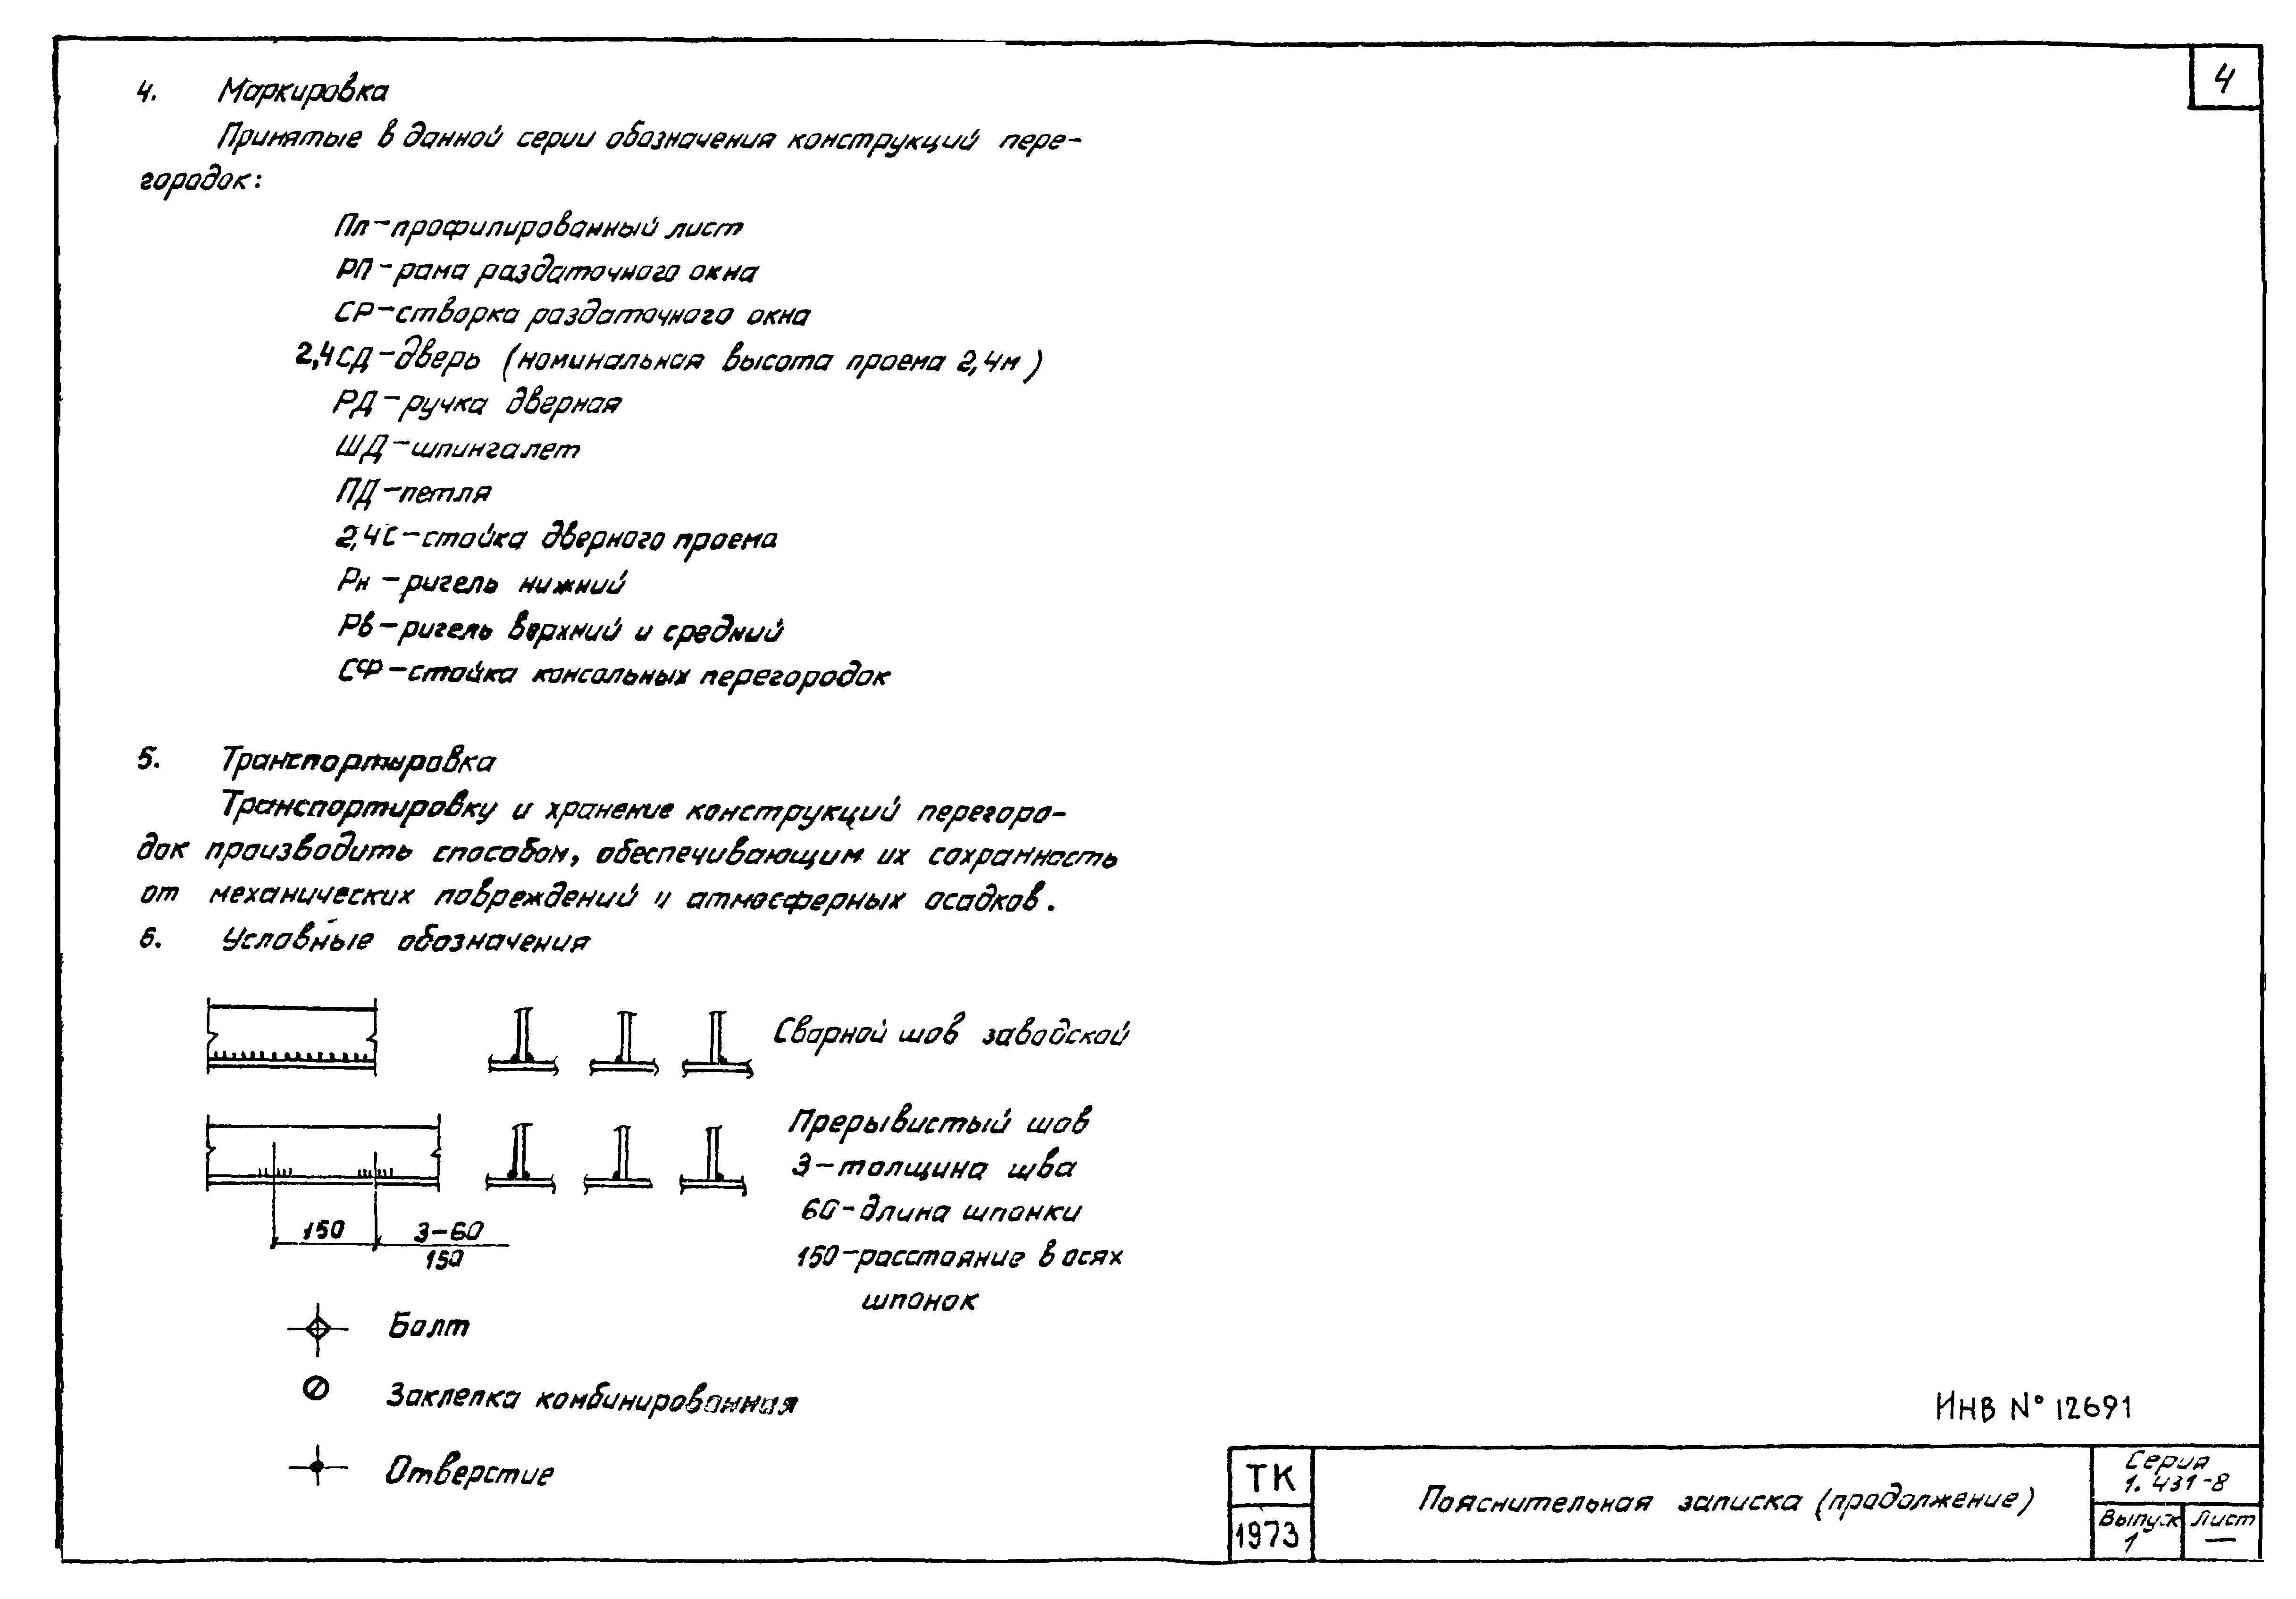 4
4. Маркировка
Принятые в данной серии обозначения конструкций пере-
городок:
Пл-профилированный лист
РП-рама раздаточного окна
СР-створка раздаточного окна
2,4СД-дверь (номинальная высота проема 2,4м)
РД-ручка дверная
ШД-шпингалет
ПД-петля
2,4С-стойка дверного проема
Рн-ригель нижний
Рв-ригель верхний и средний
СФ-стойка консольных перегородок
5. Транспортировка
Транспортировку и хранение конструкций перегоро-
док производить способом, обеспечивающим их сохранность
от механических повреждений и атмосферных осадков.
6. Условные обозначения
Сварной шов заводской
Прерывистый шов
3-толщина шва
60-длина шпонки
150-расстояние в осях
шпонок
150
3-60
150
Болт
Заклепка комбинированная
Отверстие
Инв N° 12691
ТК
1973
Пояснительная записка (продолжение)
Серия
1.431-8
Выпуск
1
Лист
—